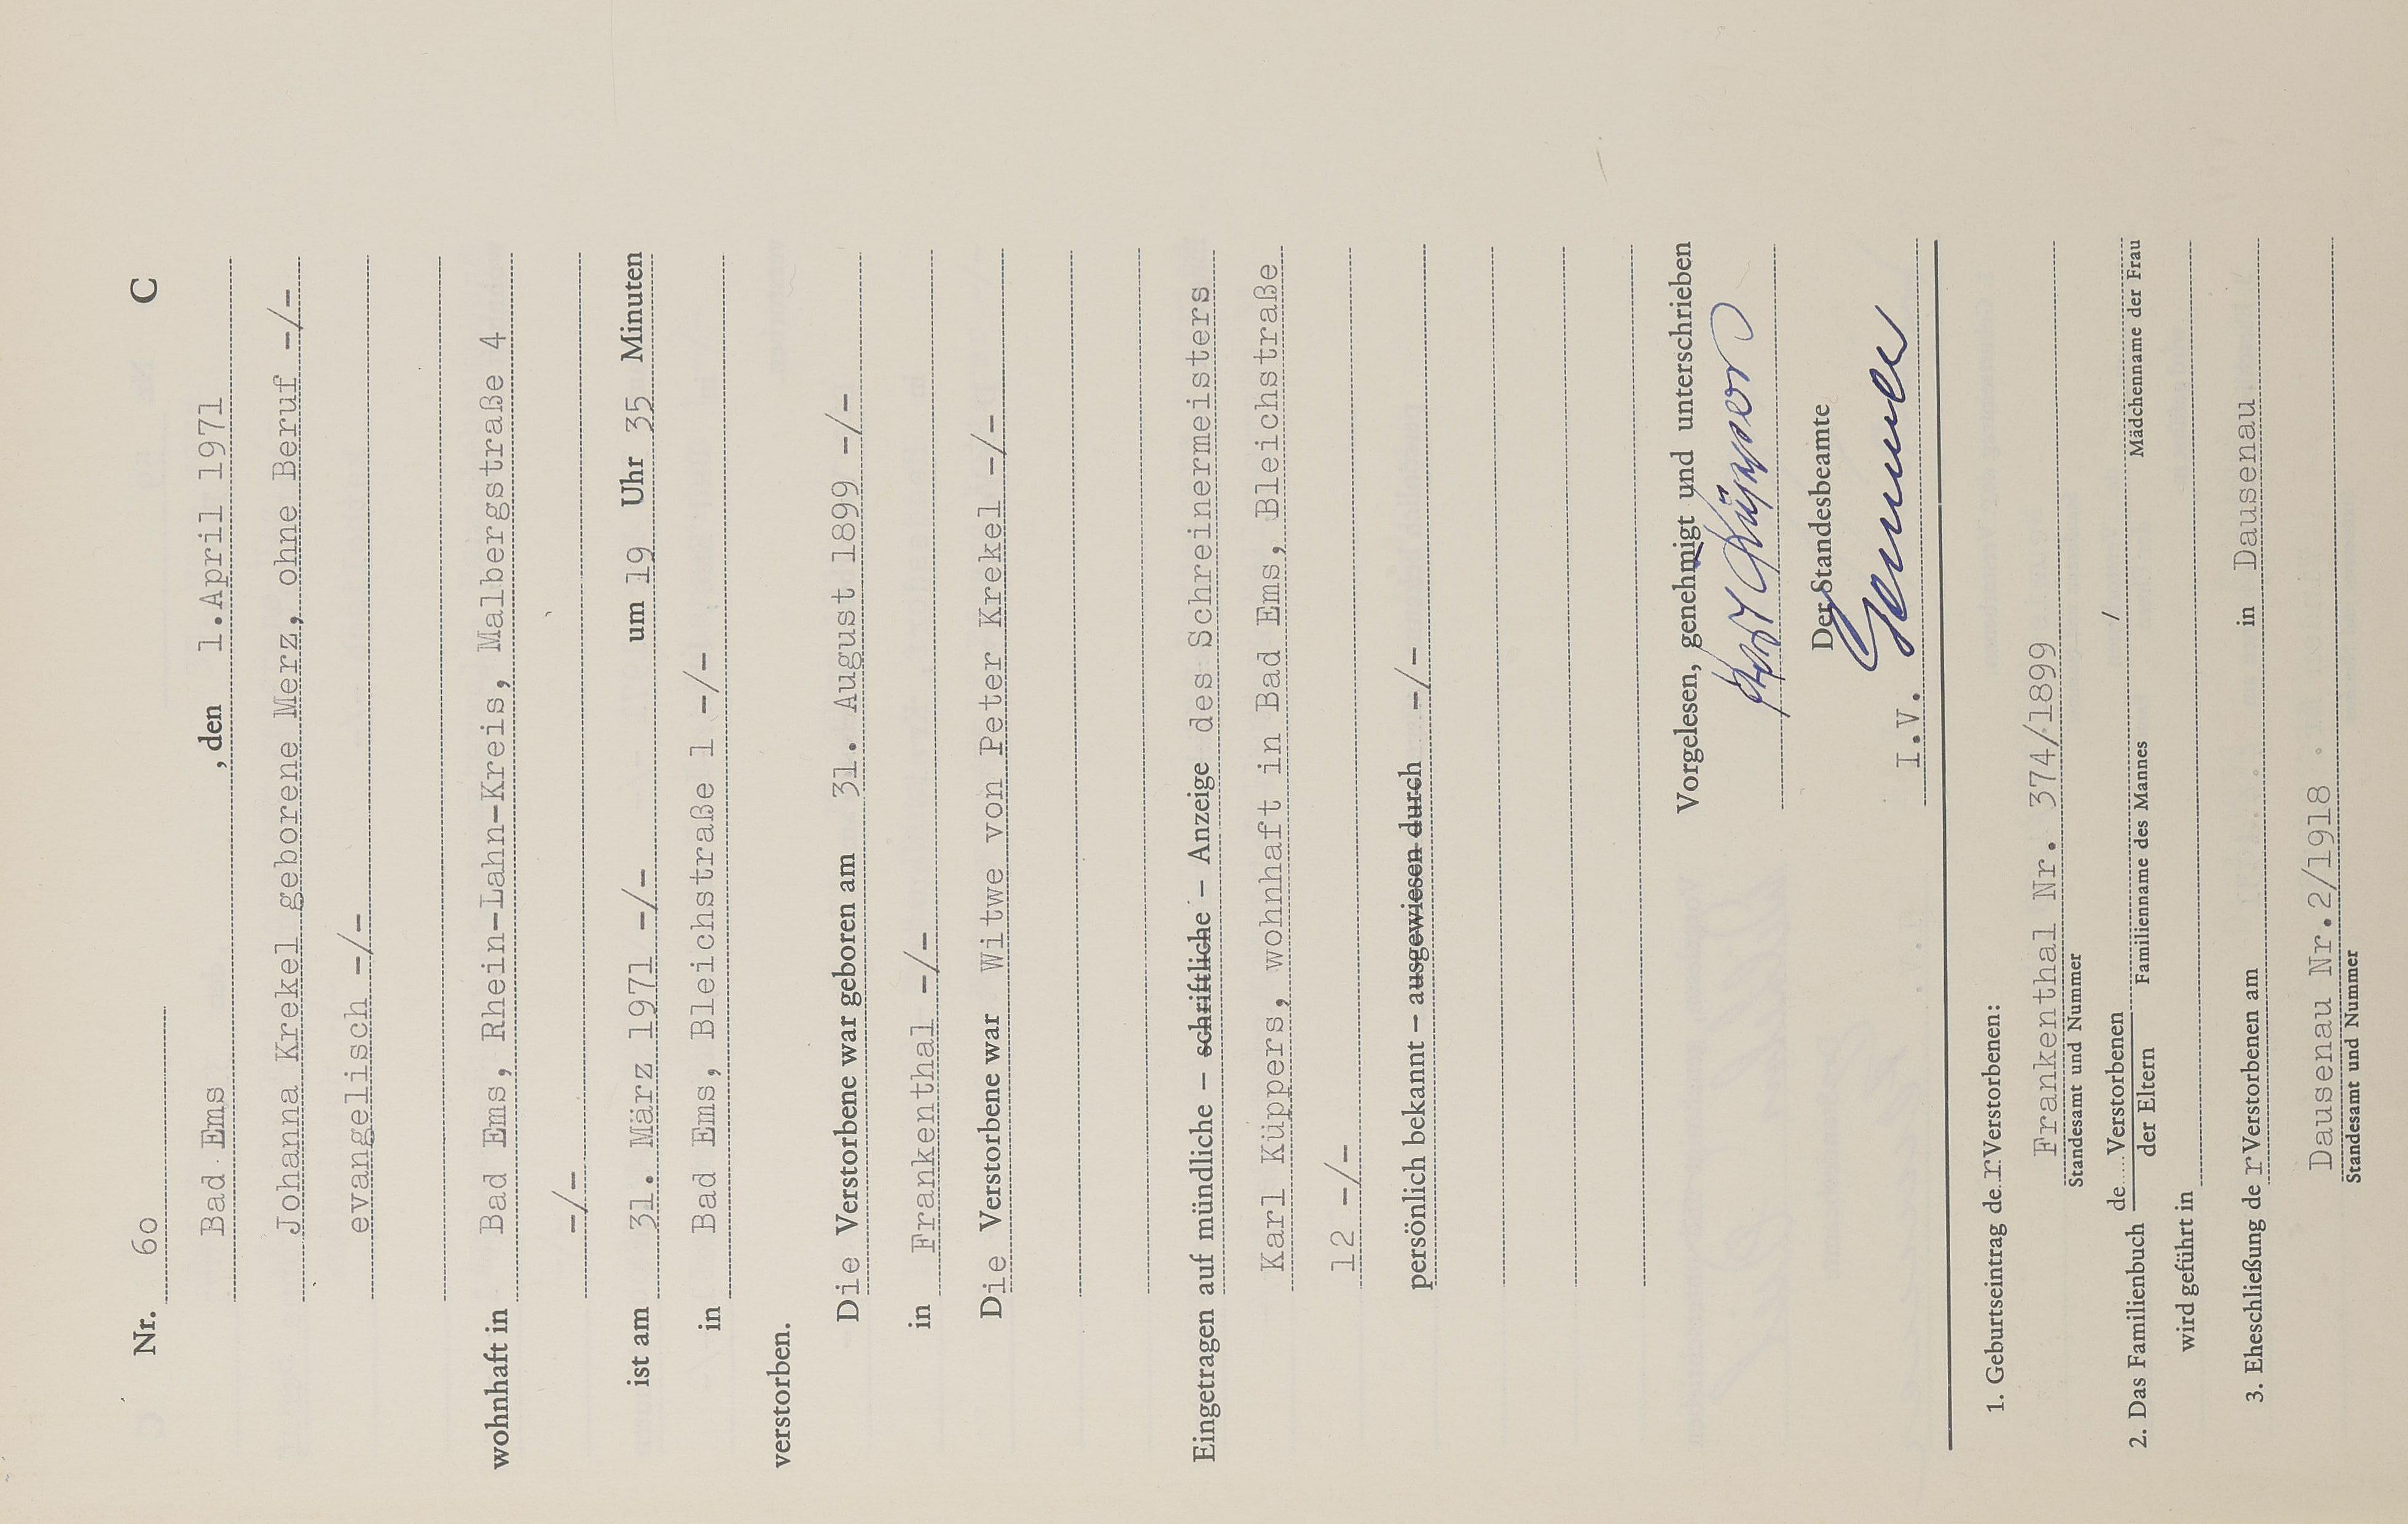 Nr. 60 C
Bad Ems , den 1.April 1971
Johanna Krekel geborene Merz, ohne Beruf -/-
evangelisch -/-
wohnhaft in Bad Ems, Rhein-Lahn-Kreis, Malbergstraße 4
-/-
ist am 31. März 1971 -/- um 19 Uhr 35 Minuten
in Bad Ems, Bleichstraße 1 -/-
verstorben.
Die Verstorbene war geboren am 31. August 1899 -/-
in Frankenthal -/-
Die Verstorbene war Witwe von Peter Krekel -/-
Eingetragen auf mündliche – schriftliche – Anzeige des Schreinermeisters
Karl Küppers, wohnhaft in Bad Ems, Bleichstraße
12 -/-
persönlich bekannt – ausgewiesen durch -/-
Vorgelesen, genehmigt und unterschrieben
Karl Küppers
Der Standesbeamte
I.V.
1. Geburtseintrag der Verstorbenen:
Frankenthal Nr. 374/1899
Standesamt und Nummer
2. Das Familienbuch de Verstorbenen /
der Eltern Familienname des Mannes Mädchenname der Frau
wird geführt in
3. Eheschließung der Verstorbenen am in Dausenau
Dausenau Nr.2/1918 .
Standesamt und Nummer